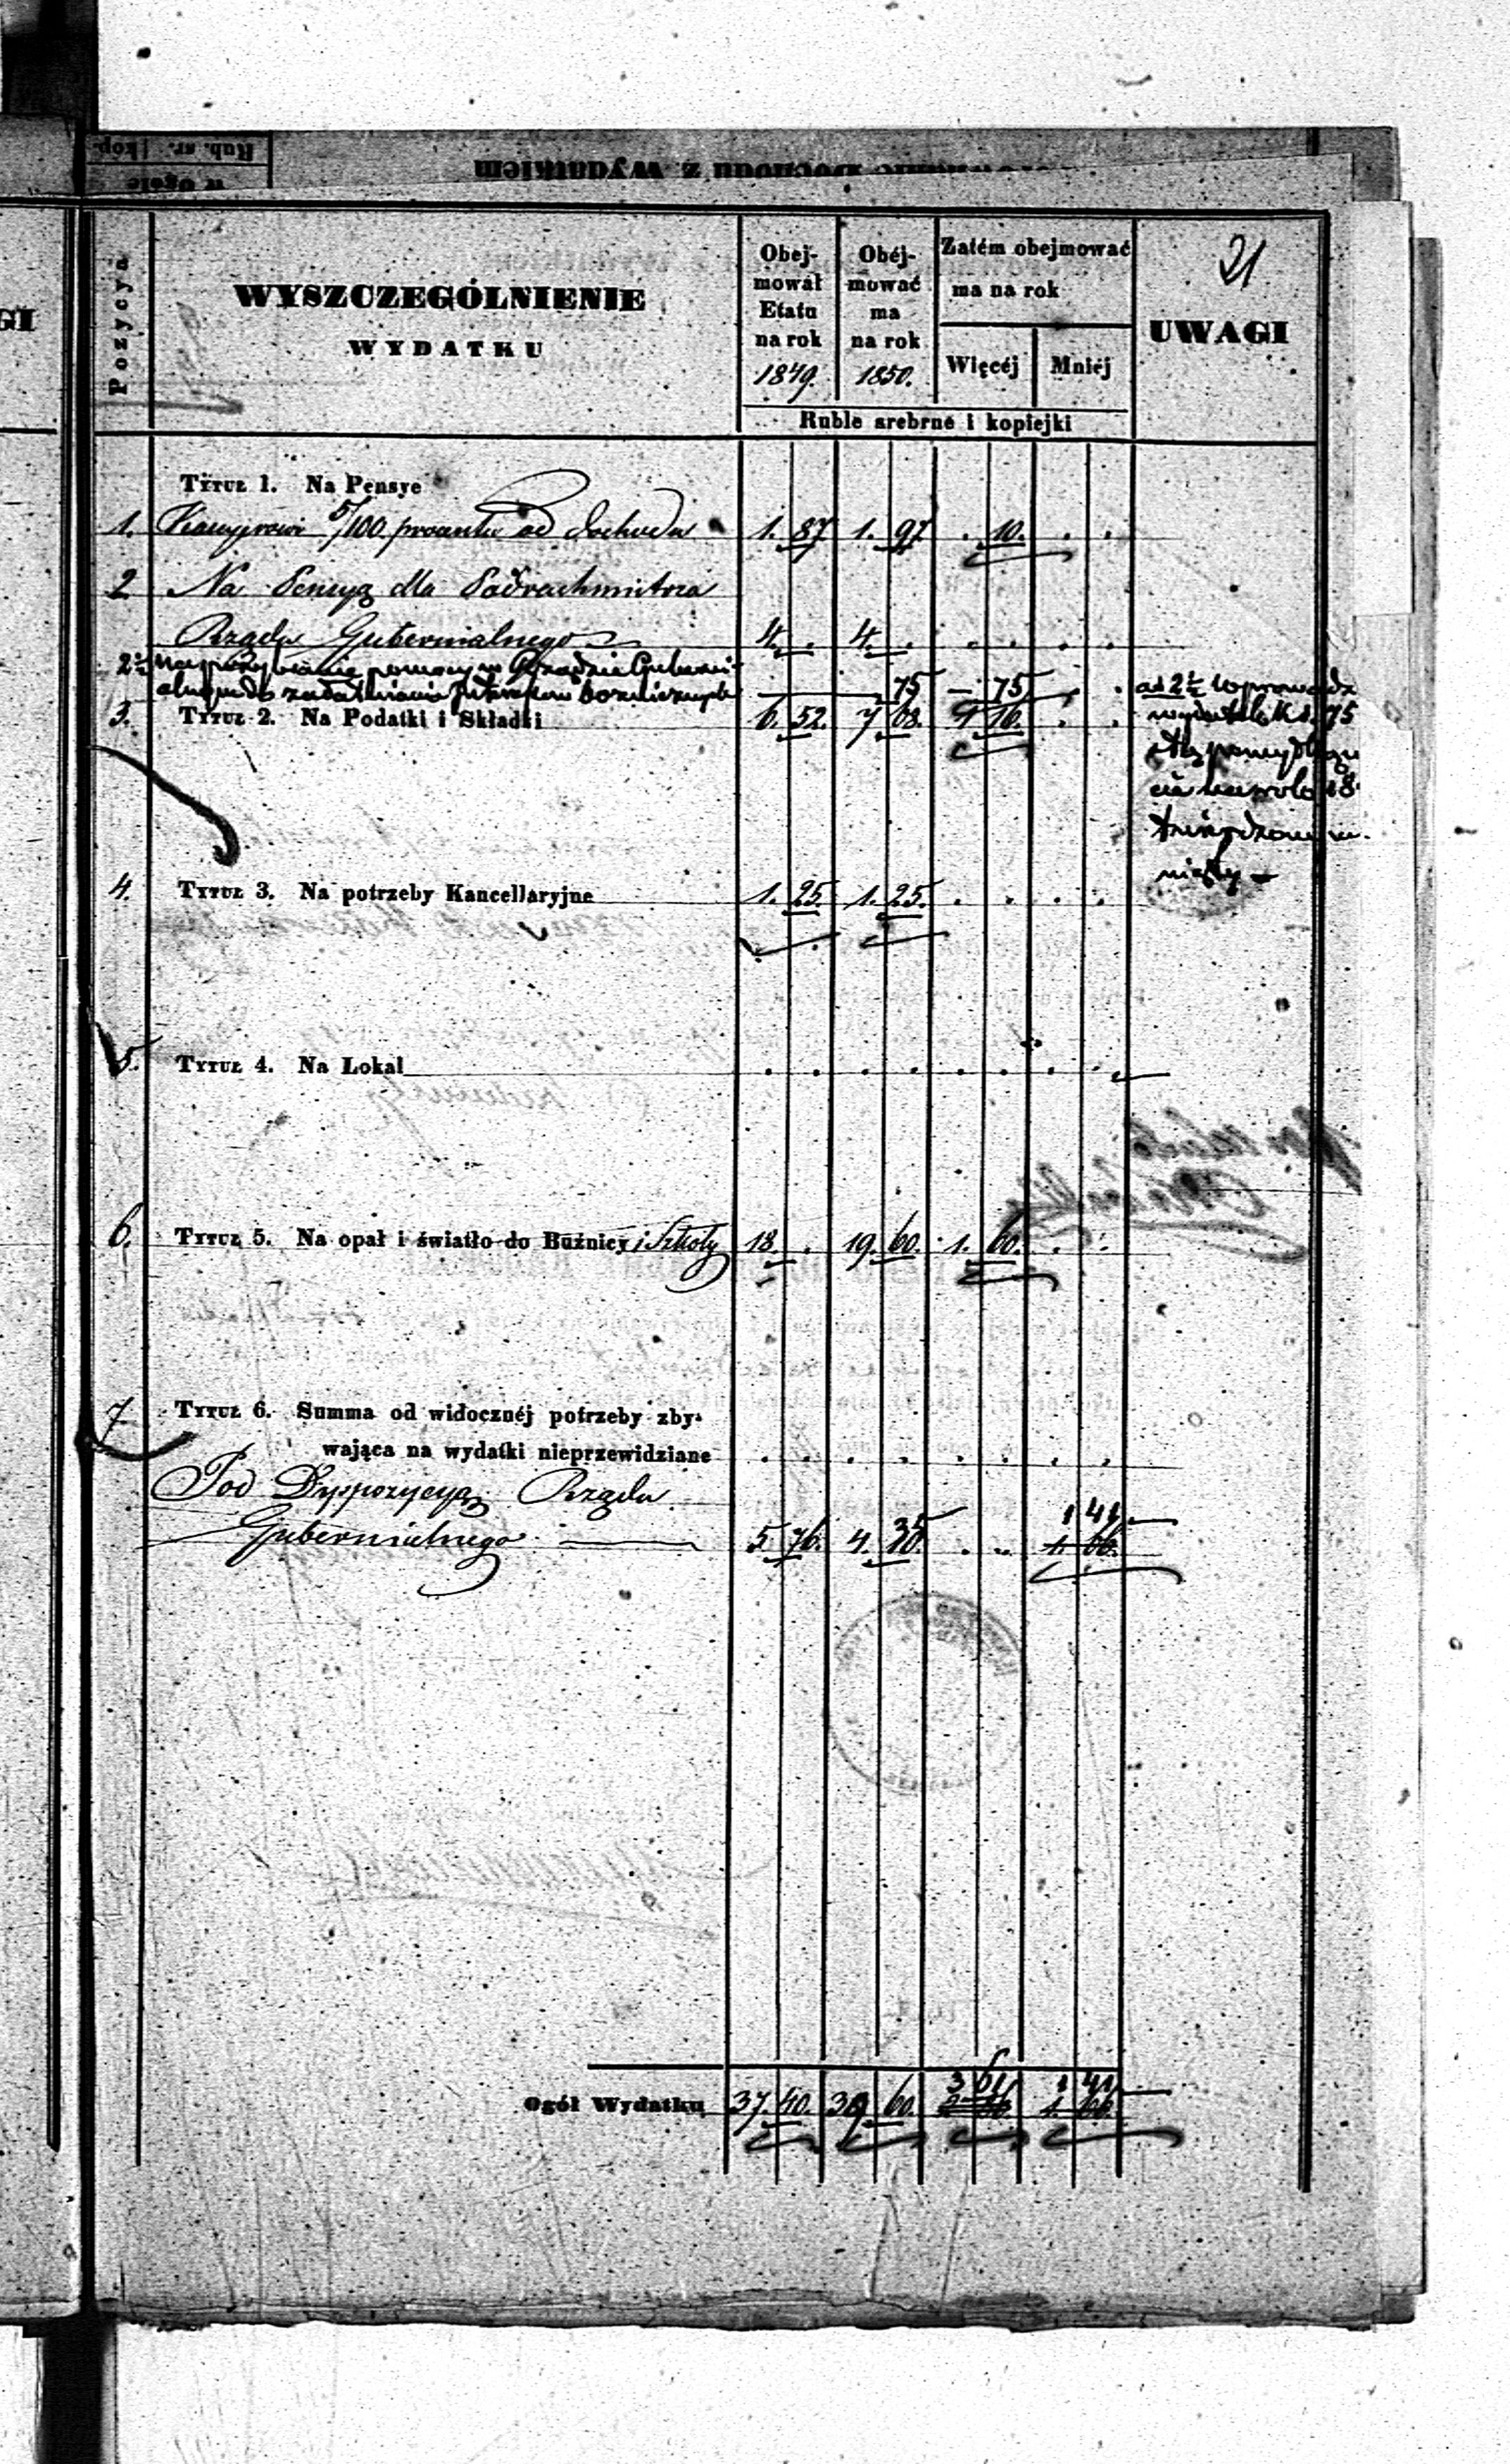 21
Pozycya
WYSZCZEGÓLNIENIE
WYDATKU
Obej-
mował
Etatu
na rok
1849.
Obéj-
mować
ma
na rok
1850.
Zatém obejmować
ma na rok
Więcéj
Mniéj
UWAGI
Ruble srebrne i kopiejki
Tytuł 1. Na Pensye
1. Kassyerowi 5/100 procentu od dochodu 1. 87 1. 97 . 10. . .
2 Na Pensyą dla Podrachmistrza
Rządu Gubernialnego 4. . 4. . . . . .
2½ Rządzie Guberni
alnym do 75 — 75
3. Tytuł 2. Na Podatki i Składki 6. 52. 7 68. 1 16. . .
ad 2½ wprowadz
75
4. Tytuł 3. Na potrzeby Kancellaryjne 1. 25. 1. 25. . . . .
5. Tytuł 4. Na Lokal . . . . . . . .
6. Tytuł 5. Na opał i światło do Bużnicy i Szkoły 18. . 19. 60. 1. 60. . .
7 Tytuł 6. Summa od widocznéj potrzeby zby-
wająca na wydatki nieprzewidziane . . . . . . . .
Pod Dyspozycyą Rządu
1 41
Gubernialnego 5. 76. 4. 35. . . 1. 66.
3 61 1 41
Ogół Wydatku 37. 40. 39 60. 1. 66.
GI
Rub. sr. kop.
w ogóle
Dochodu z wydatkiem